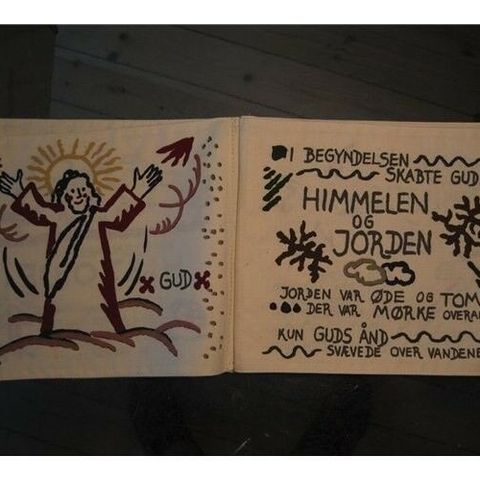 GUD
I BEGYNDELSEN
SKABTE GUD
HIMMELEN
OG
JORDEN
JORDEN VAR ØDE OG TOM
DER VAR MØRKE OVERAL
KUN GUDS ÅND
SVÆVEDE OVER VANDENE